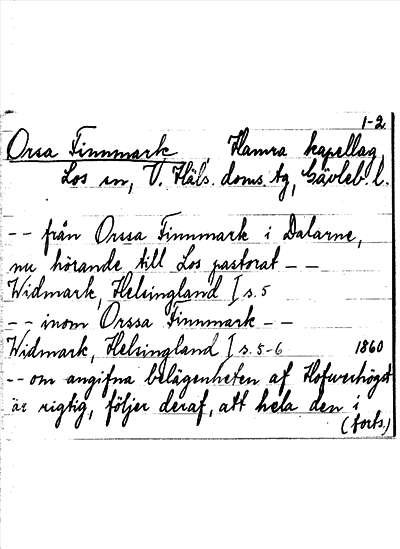 1-2
Orsa Finnmark, Hamra kapellag,
Los sn, V. Häls. doms. tg, Gävleb. l.
-- från Orssa Finnmark i Dalarne,
nu hörande till Los pastorat --
Widmark, Helsingland I s. 5
-- inom Orssa Finnmark --
Widmark, Helsingland I s. 5-6 1860
-- om angifna belägenheten af Hofwerhögst
är rigtig, följer deraf, att hela den i
(forts.)